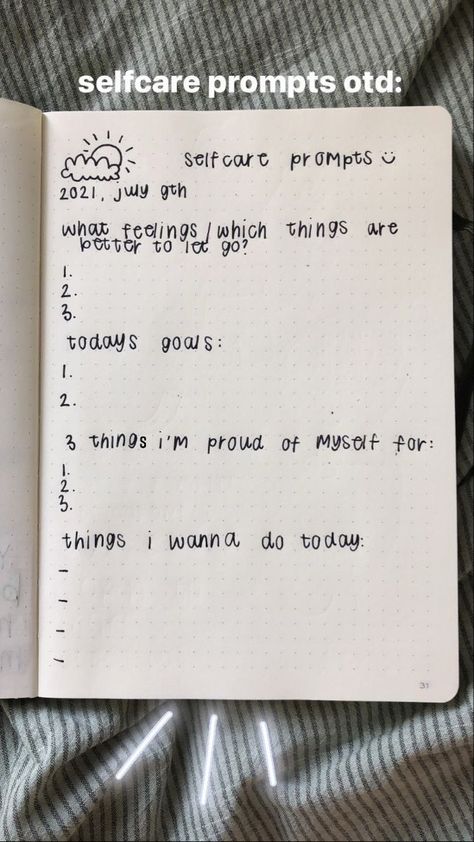 selfcare prompts otd:
selfcare prompts
2021, july 9th
what feelings/which things are
better to let go?
1.
2.
3.
todays goals:
1.
2.
3 things i'm proud of myself for:
1.
2.
3.
things i wanna do today:
-
-
-
-
31